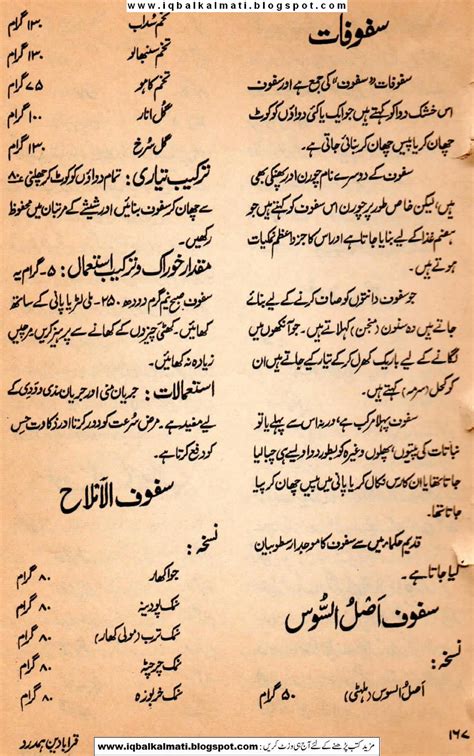 www.iqbalkalmati.blogspot.com
سفوفات
سفوفات "سفوف" کی جمع ہے اور سفوف
اس خشک دوا کو کہتے ہیں جو ایک یا کئی دواؤں کو کوٹ
چھان کر یا پیس چھان کر بنائی جاتی ہے۔
سفوف کے دوسرے نام چورن اور پھنکی بھی
ہیں، لیکن خاص طور پر چورن اس سفوف کو کہتے ہیں جو
ہضم غذا کے لیے بنایا جاتا ہے اور اس کا جزو اعظم نمکیات
ہوتے ہیں۔
جو سفوف دانتوں کو صاف کرنے کے لیے بنائے
جاتے ہیں وہ سنون (منجن) کہلاتے ہیں۔ جو آنکھوں میں
لگانے کے لیے باریک کھرل کر کے تیار کیے جاتے ہیں ان
کو کحل (سرمہ) کہتے ہیں۔
سفوف پہلا مرکب ہے، ورنہ اس سے پہلے یا تو
نباتات کی پتیوں، پھلوں وغیرہ کو بطور دوا ویسے ہی چبا لیا
جاتا تھا یا ان کا رس نکال کر یا پانی میں پیس چھان کر پیا
جاتا تھا۔
قدیم حکماء میں سے سفوف کا موجد ارسطو بیان
کیا جاتا ہے۔
سفوف اَصلُ السُّوس
نسخہ:
اَصلُ السوس (ملہٹی) ۵۰ گرام
تخم سُداب ۱۳۰ گرام
تخم سنبھالو ۱۳۰ گرام
تخم کاہو ۷۵ گرام
گلِ انار ۱۰۰ گرام
گل سرخ ۱۳۰ گرام
ترکیب تیاری: تمام دواؤں کو کوٹ کر چھلنی ۸۰
سے چھان کر سفوف بنائیں اور شیشے کے مرتبان میں محفوظ
رکھیں۔
مقدار خوراک و ترکیب استعمال: ۵ گرام یہ
سفوف صبح نیم گرم دودھ ۲۵۰ ملی لٹر یا پانی کے ساتھ
کھائیں۔ کھٹی چیزوں کے کھانے سے پرہیز کریں مرچیں
زیادہ نہ کھائیں۔
استعمالات: جریان منی اور جریان مذی و ودی کے
لیے مفید ہے۔ مرض سُرعت کو دور کرتا اور ذکاوت حِس
کو دفع کرتا ہے۔
سفوف الاَملاح
نسخہ:
جوا کھار ۸۰ گرام
نمک پودینہ ۸۰ گرام
نمک ترب (مولی کھار) ۸۰ گرام
نمک چرچٹہ ۸۰ گرام
نمک خربوزہ ۸۰ گرام
۱۶۷
مزید کتب پڑھنے کے لئے آج ہی وزٹ کریں: www.iqbalkalmati.blogspot.com
قرابادین ہمدرد